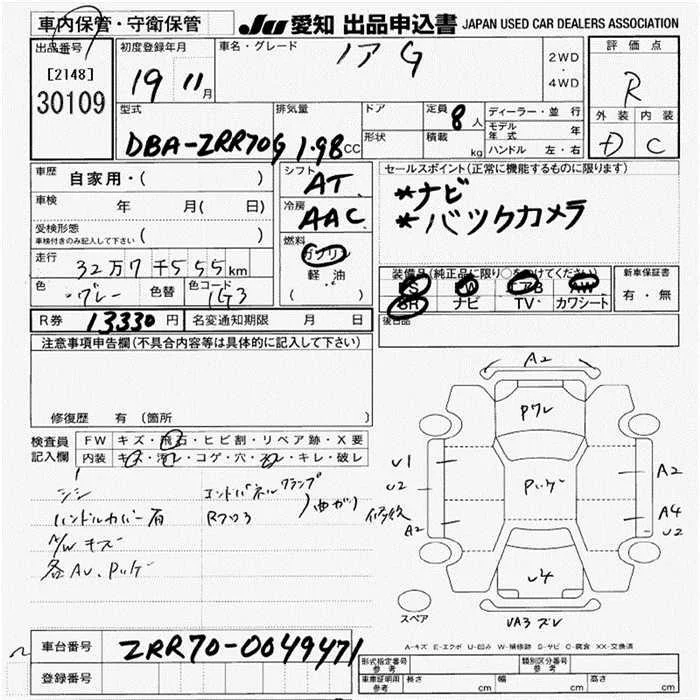 車内保管・守衛保管
JU 愛知 出品申込書 JAPAN USED CAR DEALERS ASSOCIATION
出品番号
[2148]
30109
初度登録年月
19 11月
車名・グレード
ノア G
2WD
・
4WD
評価点
R
外装 内装
D C
型式
DBA-ZRR70G
排気量
1.98 CC
ドア
形状
定員 8人
積載 kg
ディーラー・並行
モデル年式 年
ハンドル 左・右
車歴
自家用・( )
車検 年 月( 日)
受検形態
車検付きのみ記入して下さい ( )
走行
32万7千555km
色 グレー 色替 色コード 1G3
シフト
AT
冷房
AAC
燃料
ガソリン
軽油
( )
セールスポイント(正常に機能するものに限ります)
*ナビ
*バックカメラ
装備品(純正品に限り○をつけてください)
PS PW エアB AW
SR ナビ TV カワシート
新車保証書
有・無
後日品
R券 13330円 名変通知期限 月 日
注意事項申告欄(不具合内容等は具体的に記入して下さい)
修復歴 有(箇所
検査員
記入欄
FW キズ・飛石・ヒビ割・リペア跡・X要
内装 キズ・汚レ・コゲ・穴・スレ・キレ・破レ
ハンドルカバー有
A/W キズ
各AU、Pハゲ
エンドパネル クランプ
曲がり
A2
Pワレ
U1
U2
A2
Pハゲ
A2
A4
U2
U4
UA3 ズレ
スペア
A-キズ E-エクボ U-凹み W-補修跡 S-サビ C-腐食 XX-交換済
車台番号
ZRR70-0049471
登録番号
形式指定番号 参考
類別区分番号 参考
車庫証明用 参考 長さ cm 幅 cm 高さ cm